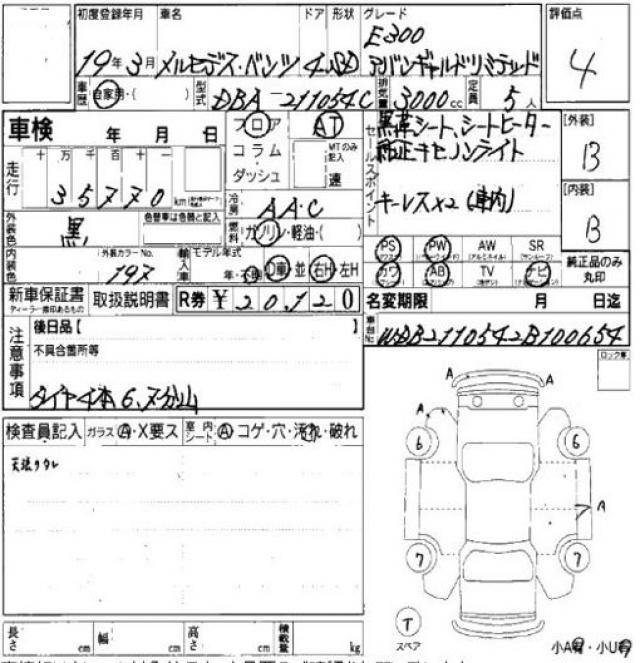 初度登録年月 車名 ドア 形状 グレード 評価点
E300
19年3月 メルセデス・ベンツ 4 SD アバンギャルドリミテッド 4
車歴 自家用・( ) 型式 DBA-211054C 排気量 3000cc 定員 5人
車検 年 月 日
フロア AT
コラム MTのみ記入
ダッシュ 速
セールスポイント
黒革シート、シートヒーター
純正キセノンライト
キーレス×2 (車内)
[外装]
B
[内装]
B
走行 十 万 千 百 十 一
35770 km
冷房 AAC
外装色 黒 色替車は色替と記入
燃料 ガソリン・軽油・( )
内装色 外装カラーNo. 197
輸入車 モデル年式 年・不明 D車 並 右H・左H
PS PW AW SR
カワ AB TV ナビ
純正品のみ丸印
新車保証書 取扱説明書 R券 ¥20120
ディーラー捺印あるもの
名変期限 月 日迄
車台No. WDB2110542B100654
注意事項
後日品【 】
不具合箇所等
タイヤ4本6、7分山
検査員記入 ガラス A・X要ス 室内シート A コゲ・穴・汚れ・破れ
天張りタレ
ロック車
A A
A
6 6
A
7 7
T
スペア
小A有・小U有
長さ cm 幅 cm 高さ cm 積載量 kg